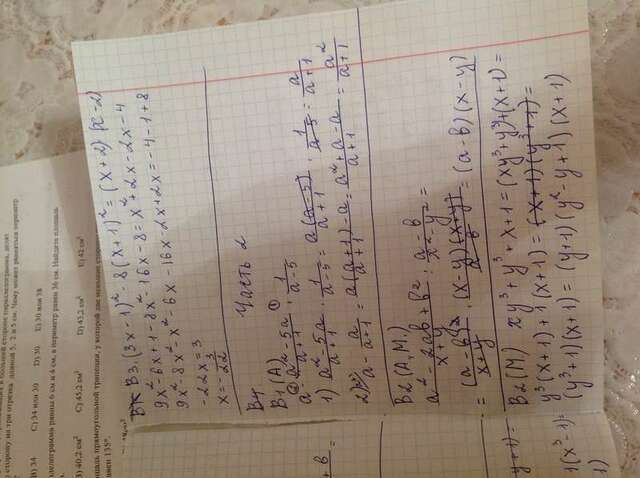 сторону на три отрезка длиной 5, 2 и 5 см. Чему может равняться периметр
34 C) 34 или 30 D) 30 E) 30 или 38
равны 6 см и 4 см, а периметр равен 36 см. Найдите площадь
40,2 см² C) 45,2 см² D) 43,2 см² E) 42 см²
прямоугольной трапеции, у которой две меньшие стороны
равен 135°.
B3. (3x-1)² - 8(x+1)² = (x+2)(x-2)
9x² - 6x + 1 - 8x² - 16x - 8 = x² + 2x - 2x - 4
9x² - 8x² - x² - 6x - 16x - 2x + 2x = -4 - 1 + 8
-22x = 3
x = - 3/22
B4 Часть 2
B1(A)
a - a² - 5a/a+1 · 1/a-5
1) a² - 5a/a+1 · 1/a-5 = a(a-5)/a+1 · 1/a-5 = a/a+1
2) a - a/a+1 = a(a+1) - a/a+1 = a² + a - a/a+1 = a²/a+1
B2(A,M.)
a² - 2ab + b²/x+y : a-b/x²-y² =
= (a-b)²/x+y · (x-y)(x+y)/a-b = (a-b)(x-y)
B2(M) xy³ + y³ + x + 1 = (xy³ + y³) + (x+1) =
y³(x+1) + 1(x+1) = (x+1)(y³+1) =
(y³+1)(x+1) = (y+1)(y² - y + 1)(x+1)
+ b
y+1) =
1(x³-1) =
1)